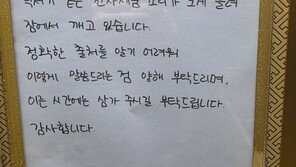 잠에서 깨고 있습니다.
정확한 출처를 알기 어려워
이렇게 말씀드리는 점 양해 부탁드리며,
이른 시간에는 삼가 주시길 부탁드립니다.
감사합니다.